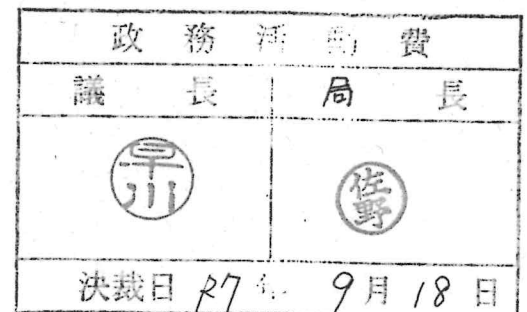 政務活動費
議長 局長
早川 佐野
決裁日 R7年 9月18日